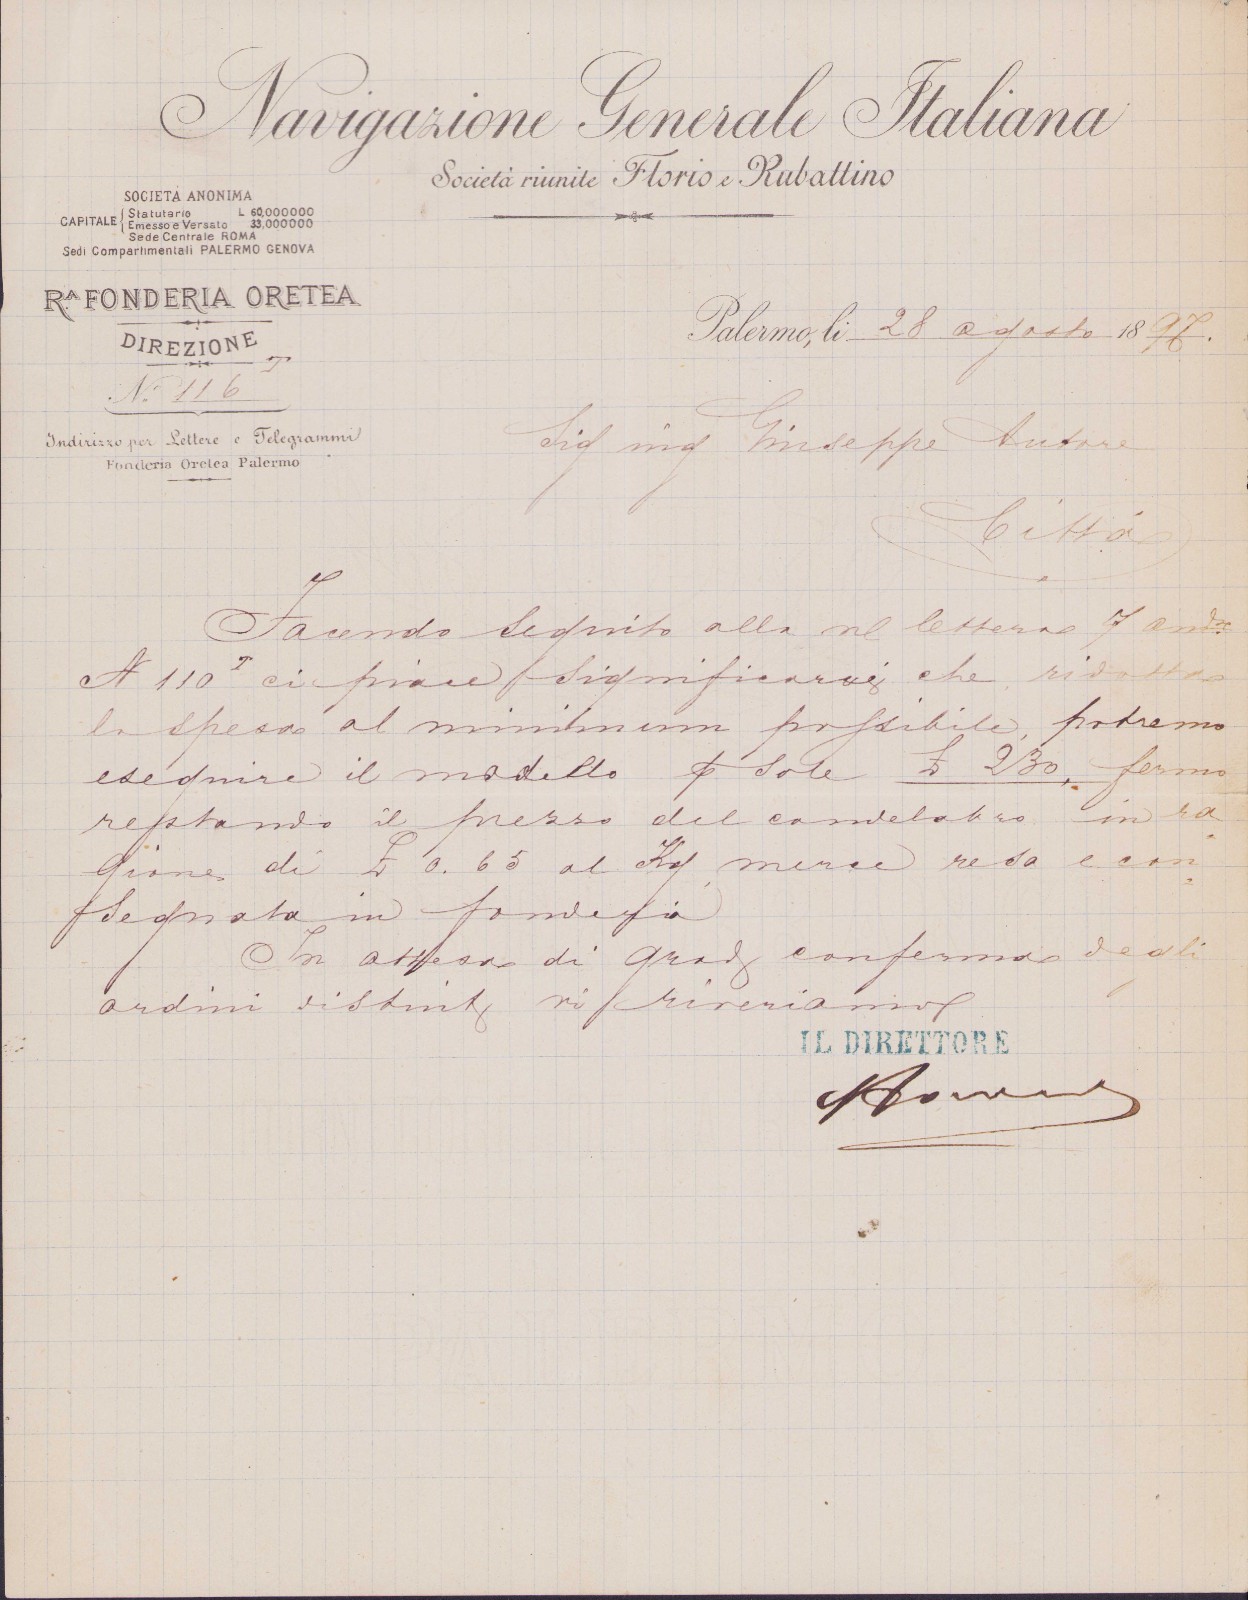 Navigazione Generale Italiana
Società riunite Florio e Rubattino
SOCIETÀ ANONIMA
CAPITALE { Statutario L 60,000000
Emesso e Versato 33,000000
Sede Centrale ROMA
Sedi Compartimentali PALERMO GENOVA
R.A FONDERIA ORETEA
DIREZIONE
N. 116 T
Indirizzo per Lettere e Telegrammi
Fonderia Oretea Palermo
Palermo, li 28 agosto 1897.
Sig ing Giuseppe Autore
Città
Facendo seguito alla lettera 7 and.
N 110 T ci piace significarvi che ridotta
la spesa al minimum possibile, potremo
eseguire il modello p sole £ 230, fermo
restando il prezzo del candelabro in ra
gione di £ 0.65 al Kg merce resa e con
segnata in fonderia
In attesa di grad conferma degli
ordini distint vi riveriamo
IL DIRETTORE